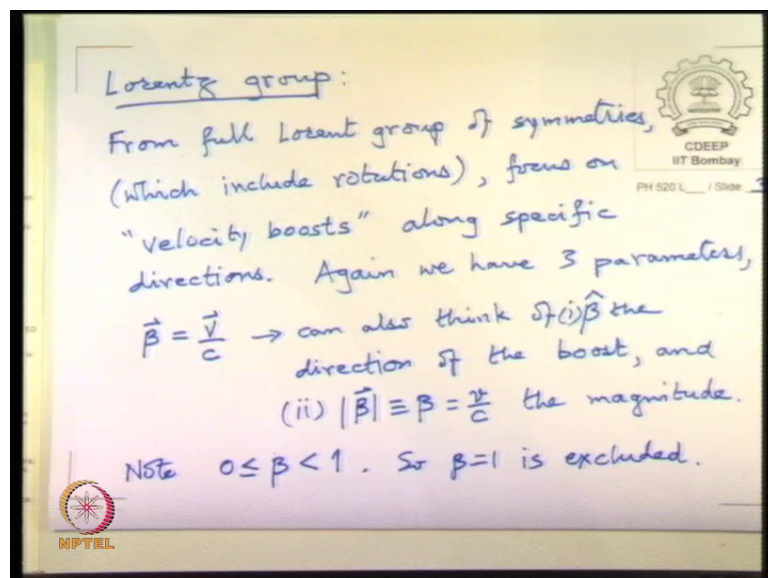 Lorentz group:
From full Lorent group of symmetries,
(which include rotations), focus on
"velocity boosts" along specific
directions. Again we have 3 parameters,
β⃗ = v⃗/c → can also think of (i) β̂ the
direction of the boost, and
(ii) |β⃗| ≡ β = v/c the magnitude.
Note 0 ≤ β < 1. So β=1 is excluded.
CDEEP
IIT Bombay
PH 520 L___ / Slide 3
NPTEL